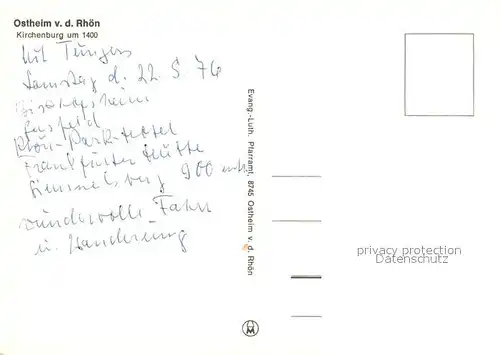 Ostheim v. d. Rhön
Kirchenburg um 1400
Mit
Samstag d. 22. 5 76
Bischofsheim
Rhön-Park-Hotel
Frankfurter Hütte
900 mtr
wundervolle Fahrt
u. Wanderung
Evang.-Luth. Pfarramt, 8745 Ostheim v. d. Rhön
privacy protection
Datenschutz